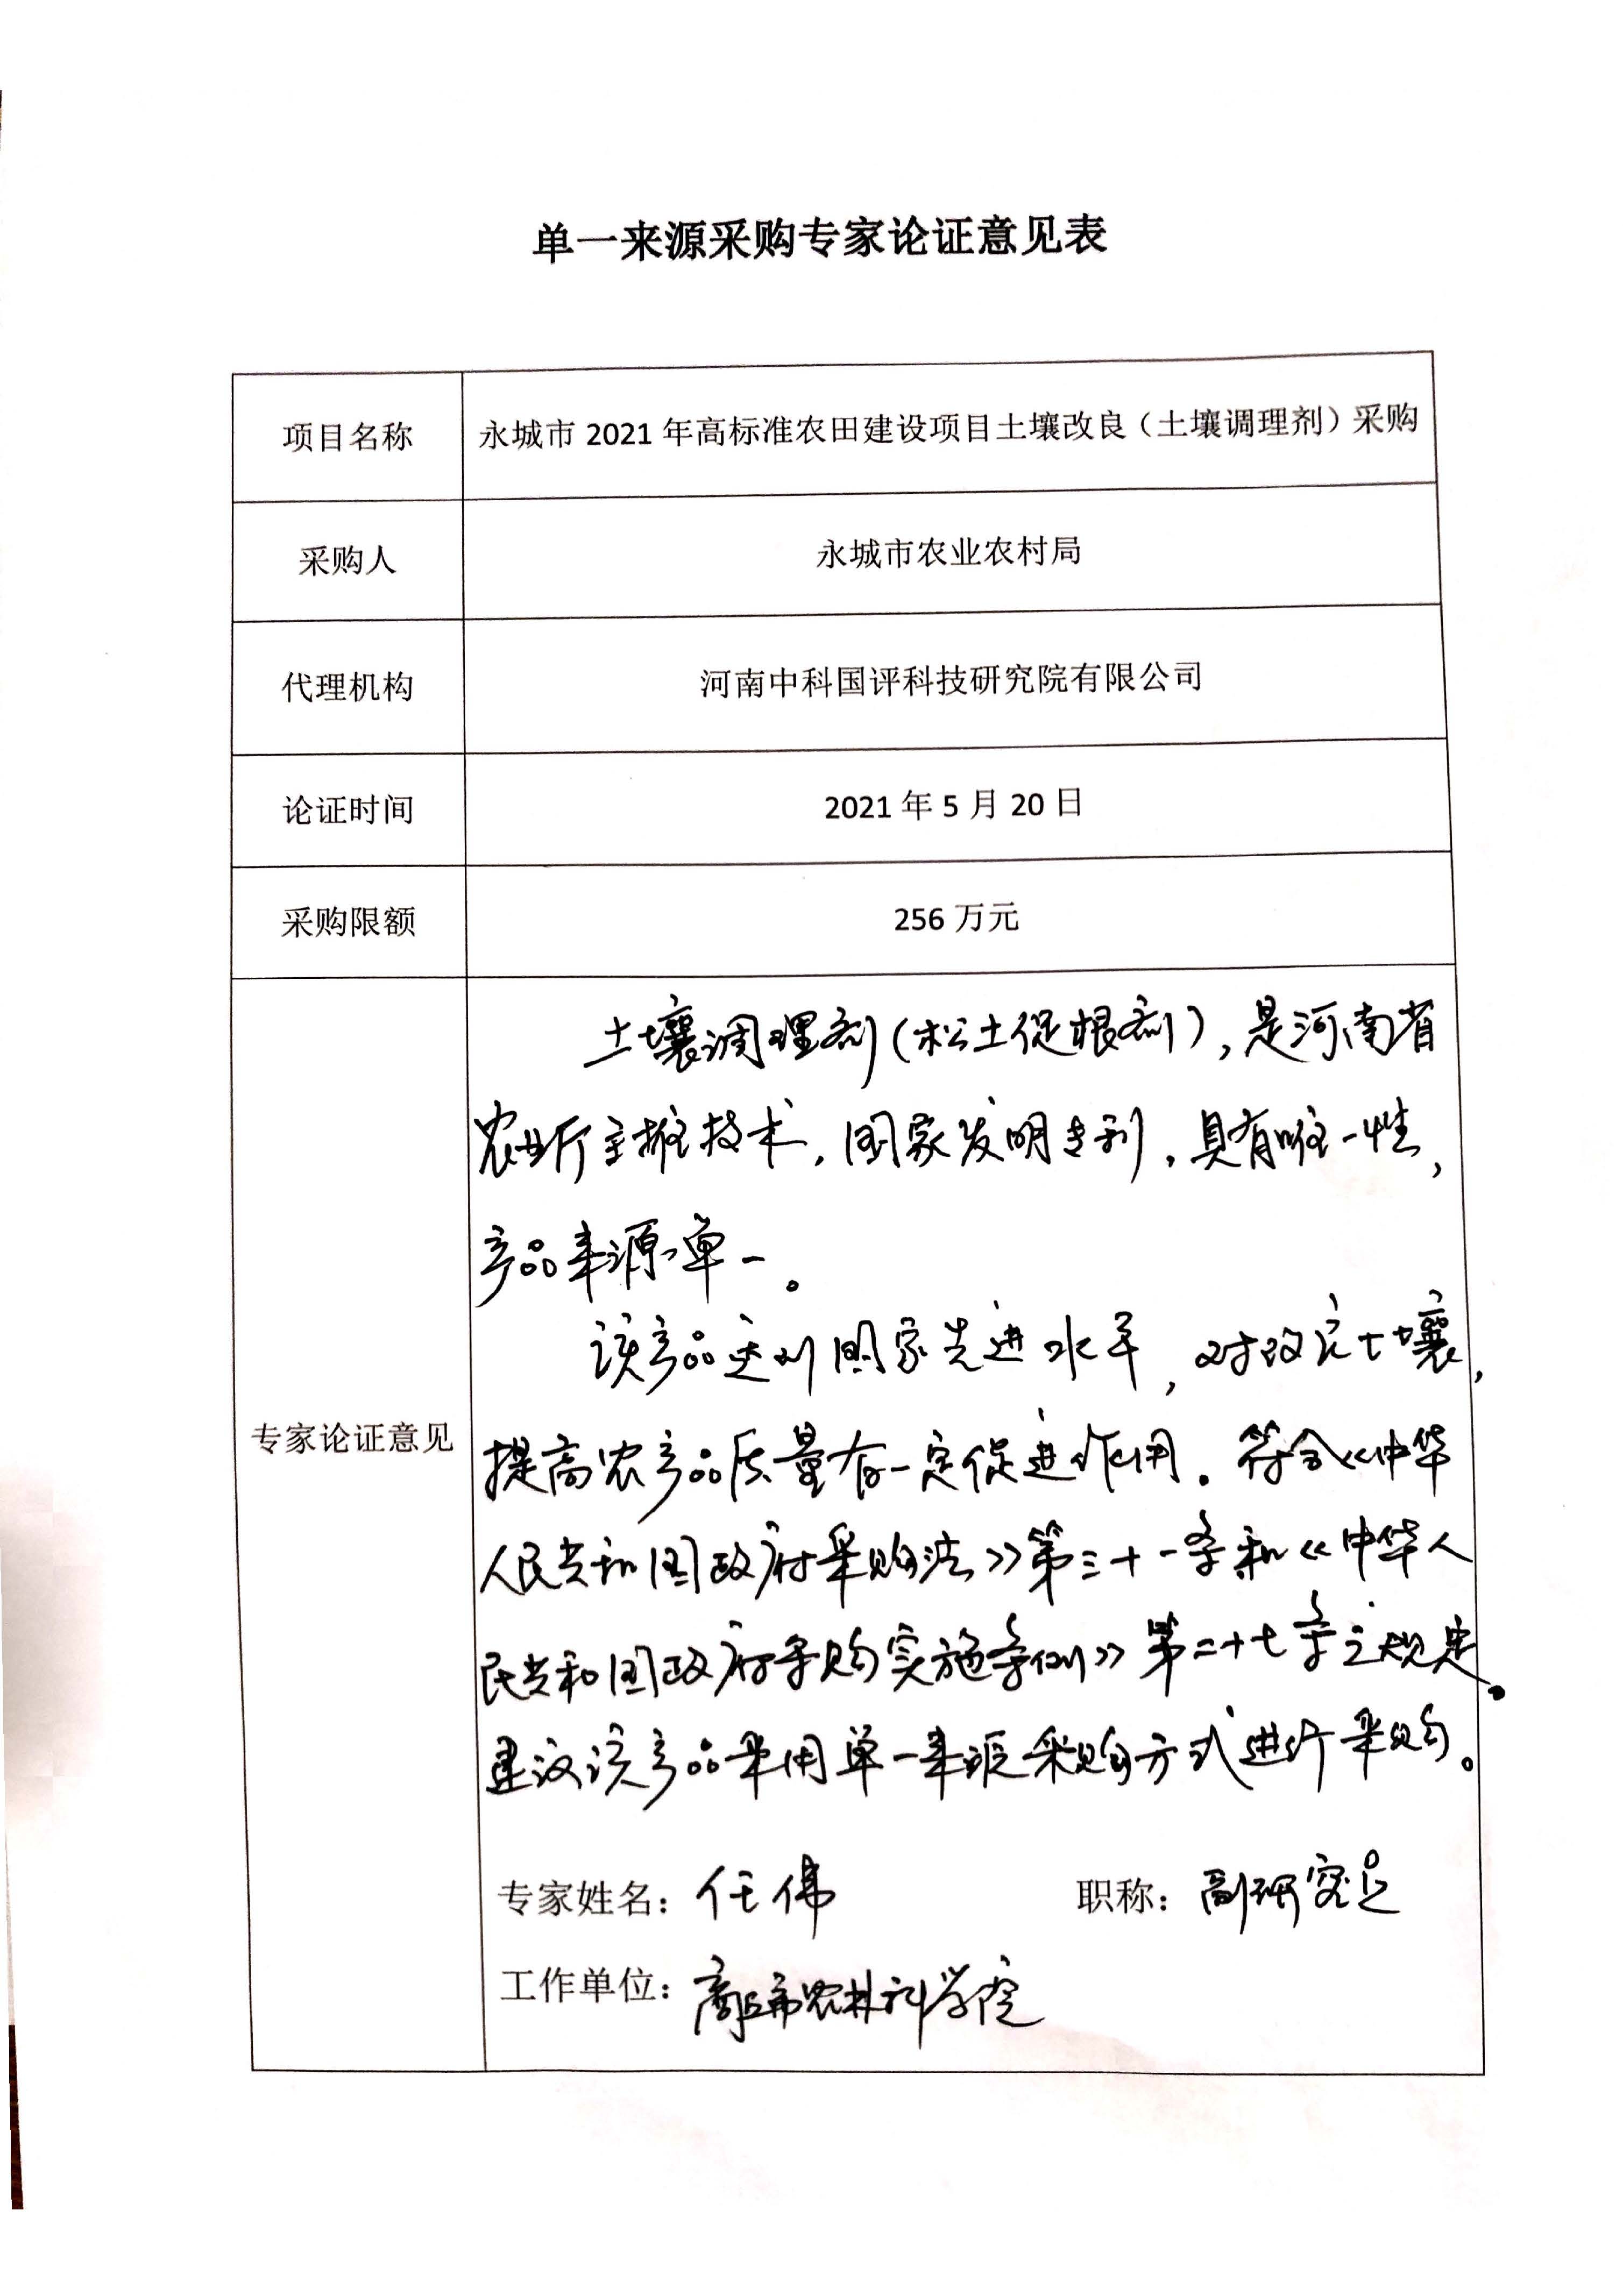 单一来源采购专家论证意见表
项目名称
永城市 2021 年高标准农田建设项目土壤改良（土壤调理剂）采购
采购人
永城市农业农村局
代理机构
河南中科国评科技研究院有限公司
论证时间
2021 年 5 月 20 日
采购限额
256 万元
专家论证意见
土壤调理剂（松土促根剂），是河南省
农业厅主推技术，国家发明专利，具有唯一性，
产品来源单一。
该产品达到国家先进水平，对改良土壤，
提高农产品质量有一定促进作用。符合《中华
人民共和国政府采购法》第三十一条和《中华人
民共和国政府采购实施条例》第二十七条之规定。
建议该产品采用单一来源采购方式进行采购。
专家姓名：任伟 职称：副研究员
工作单位：商丘市农林科学院